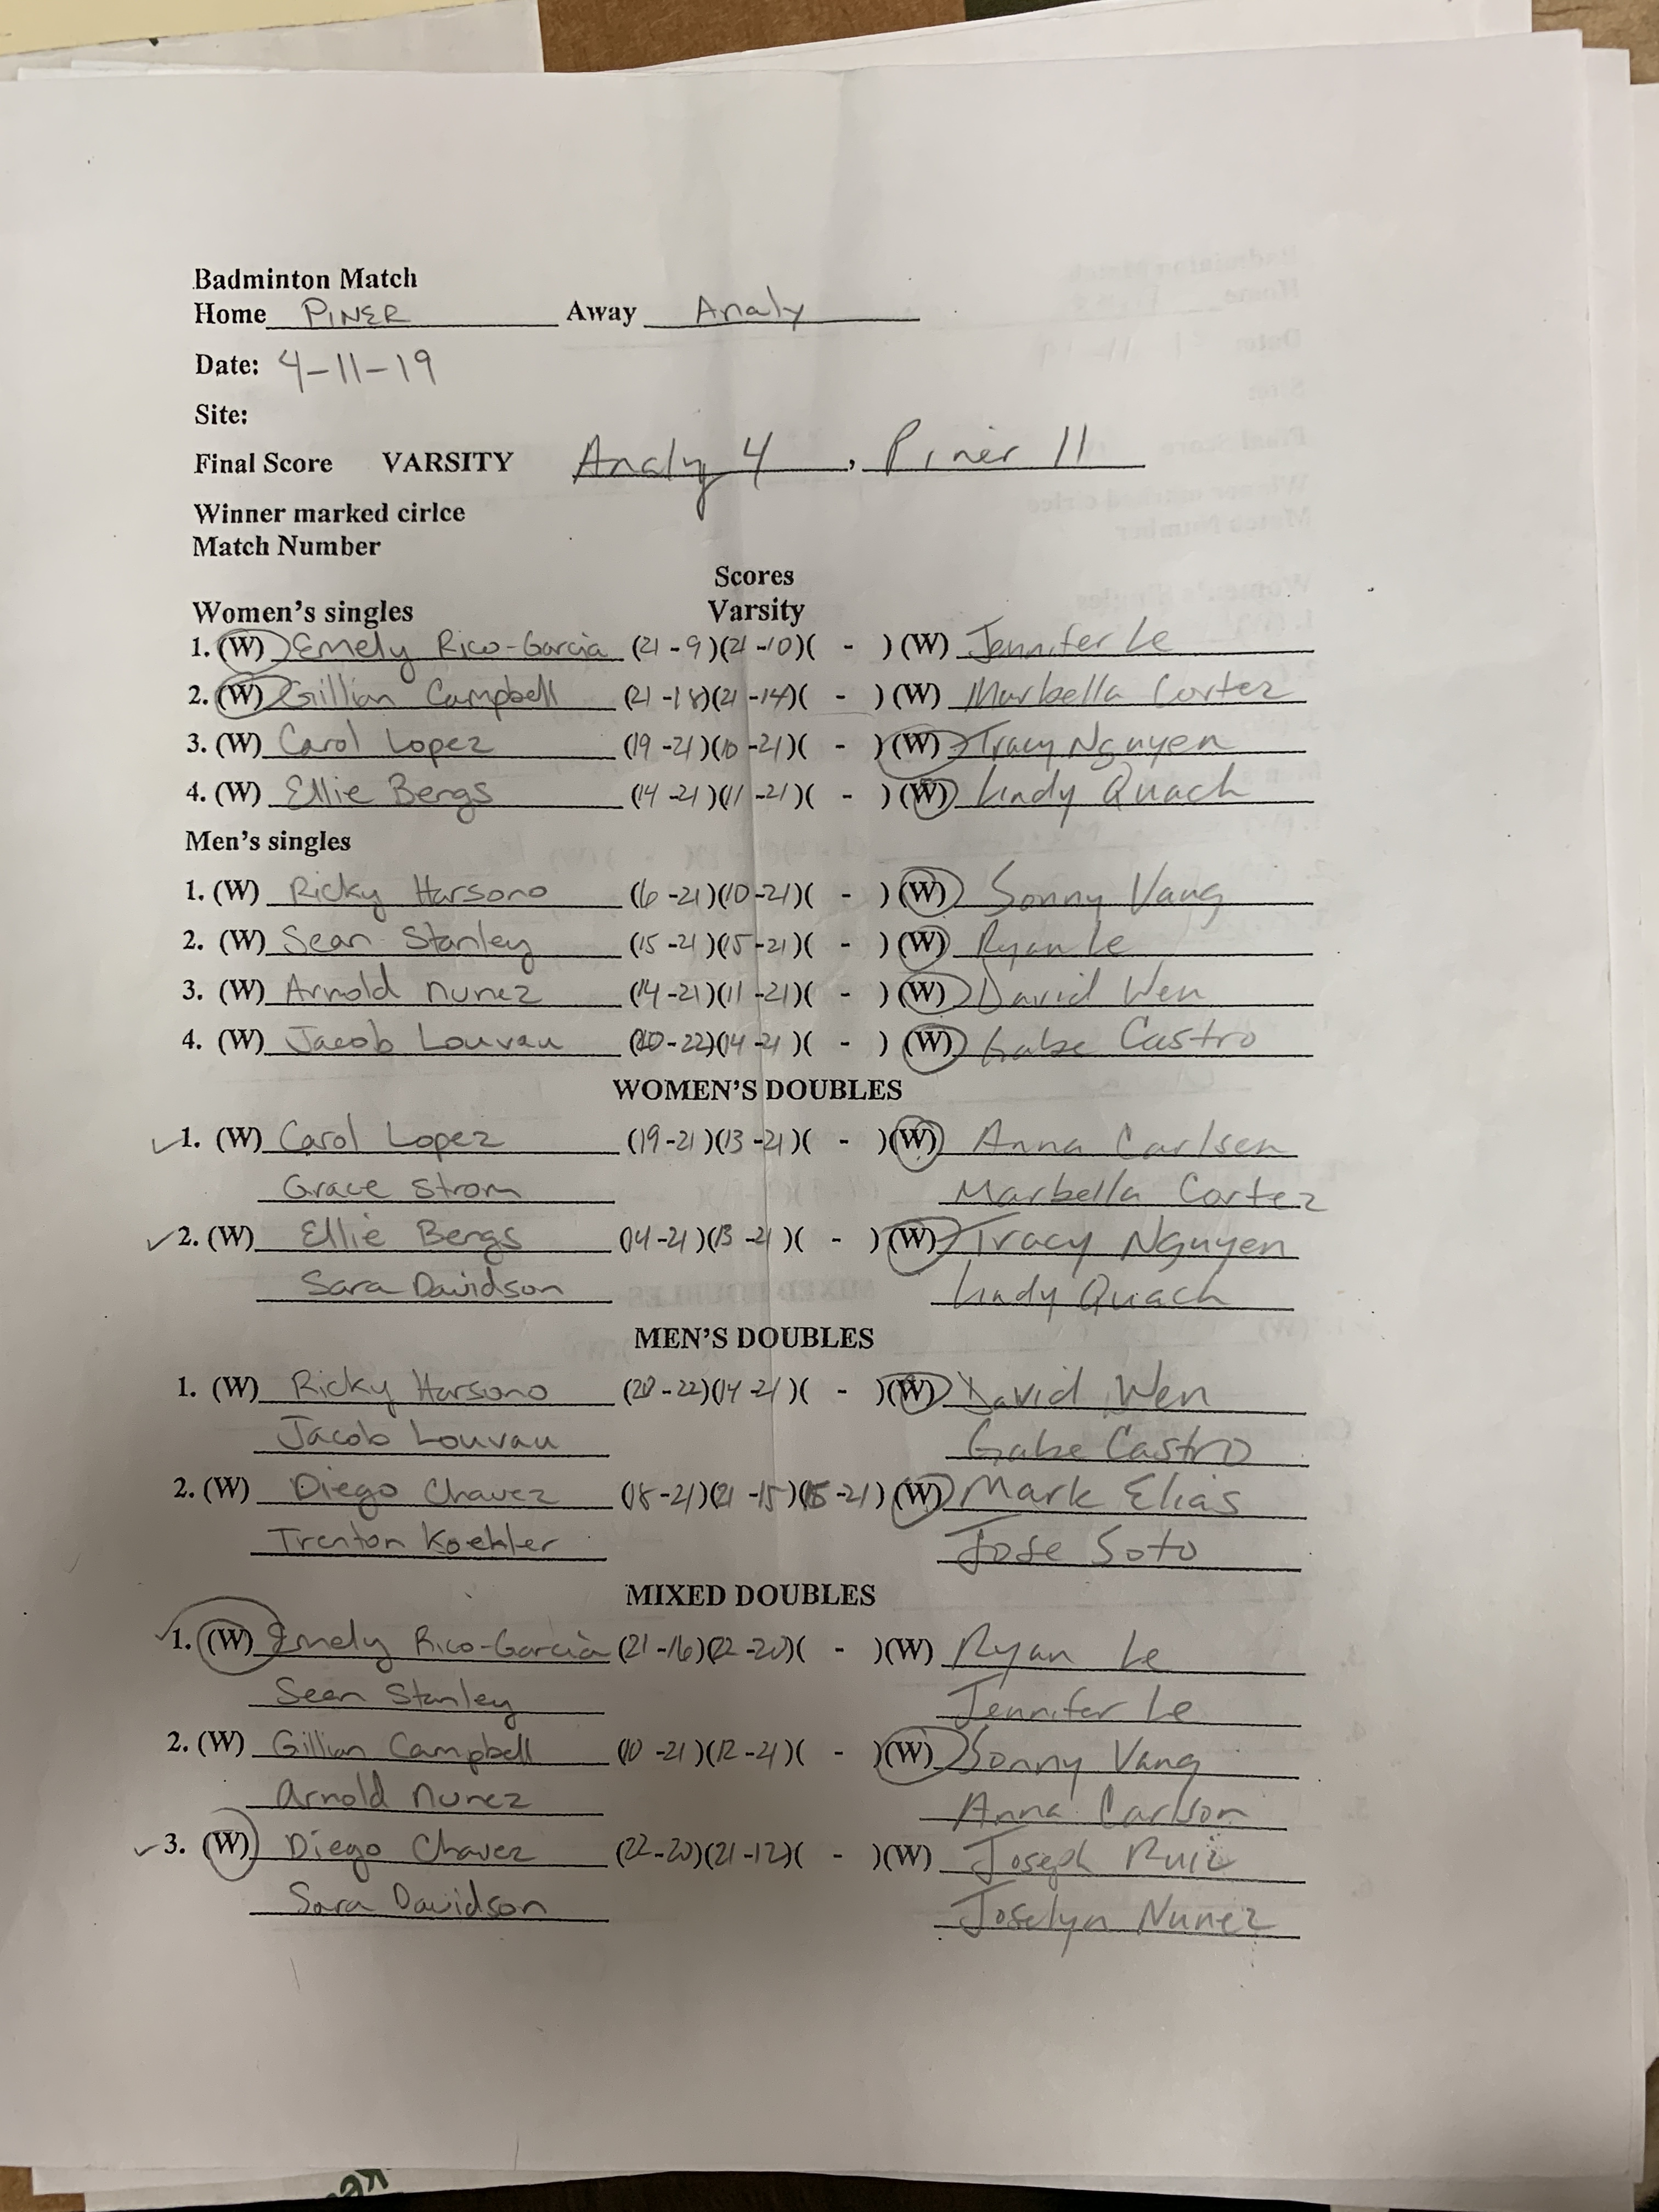 Badminton Match
Home PINER Away Analy
Date: 4-11-19
Site:
Final Score VARSITY Analy 4, Piner 11
Winner marked cirlce
Match Number
Scores
Women's singles Varsity
1. (W) Emely Rico-Garcia (21-9)(21-10)( - ) (W) Jennifer Le
2. (W) Gillian Campbell (21-18)(21-14)( - ) (W) Marbella Cortez
3. (W) Carol Lopez (19-21)(10-21)( - ) (W) Tracy Nguyen
4. (W) Ellie Bergs (14-21)(11-21)( - ) (W) Lindy Quach
Men's singles
1. (W) Ricky Harsono (6-21)(10-21)( - ) (W) Sonny Vang
2. (W) Sean Stanley (15-21)(15-21)( - ) (W) Ryan Le
3. (W) Arnold Nunez (14-21)(11-21)( - ) (W) David Wen
4. (W) Jacob Louvau (20-22)(14-21)( - ) (W) Gabe Castro
WOMEN'S DOUBLES
1. (W) Carol Lopez (19-21)(13-21)( - )(W) Anna Carlsen
Grace Strom Marbella Cortez
2. (W) Ellie Bergs (14-21)(13-21)( - )(W) Tracy Nguyen
Sara Davidson Lindy Quach
MEN'S DOUBLES
1. (W) Ricky Harsono (20-22)(14-21)( - )(W) David Wen
Jacob Louvau Gabe Castro
2. (W) Diego Chavez (18-21)(21-15)(15-21) (W) Mark Elias
Trenton Koehler Jose Soto
MIXED DOUBLES
1. (W) Emely Rico-Garcia (21-16)(22-20)( - )(W) Ryan Le
Sean Stanley Jennifer Le
2. (W) Gillian Campbell (10-21)(12-21)( - )(W) Sonny Vang
Arnold Nunez Anna Carlson
3. (W) Diego Chavez (22-20)(21-12)( - )(W) Joseph Ruiz
Sara Davidson Joselyn Nunez